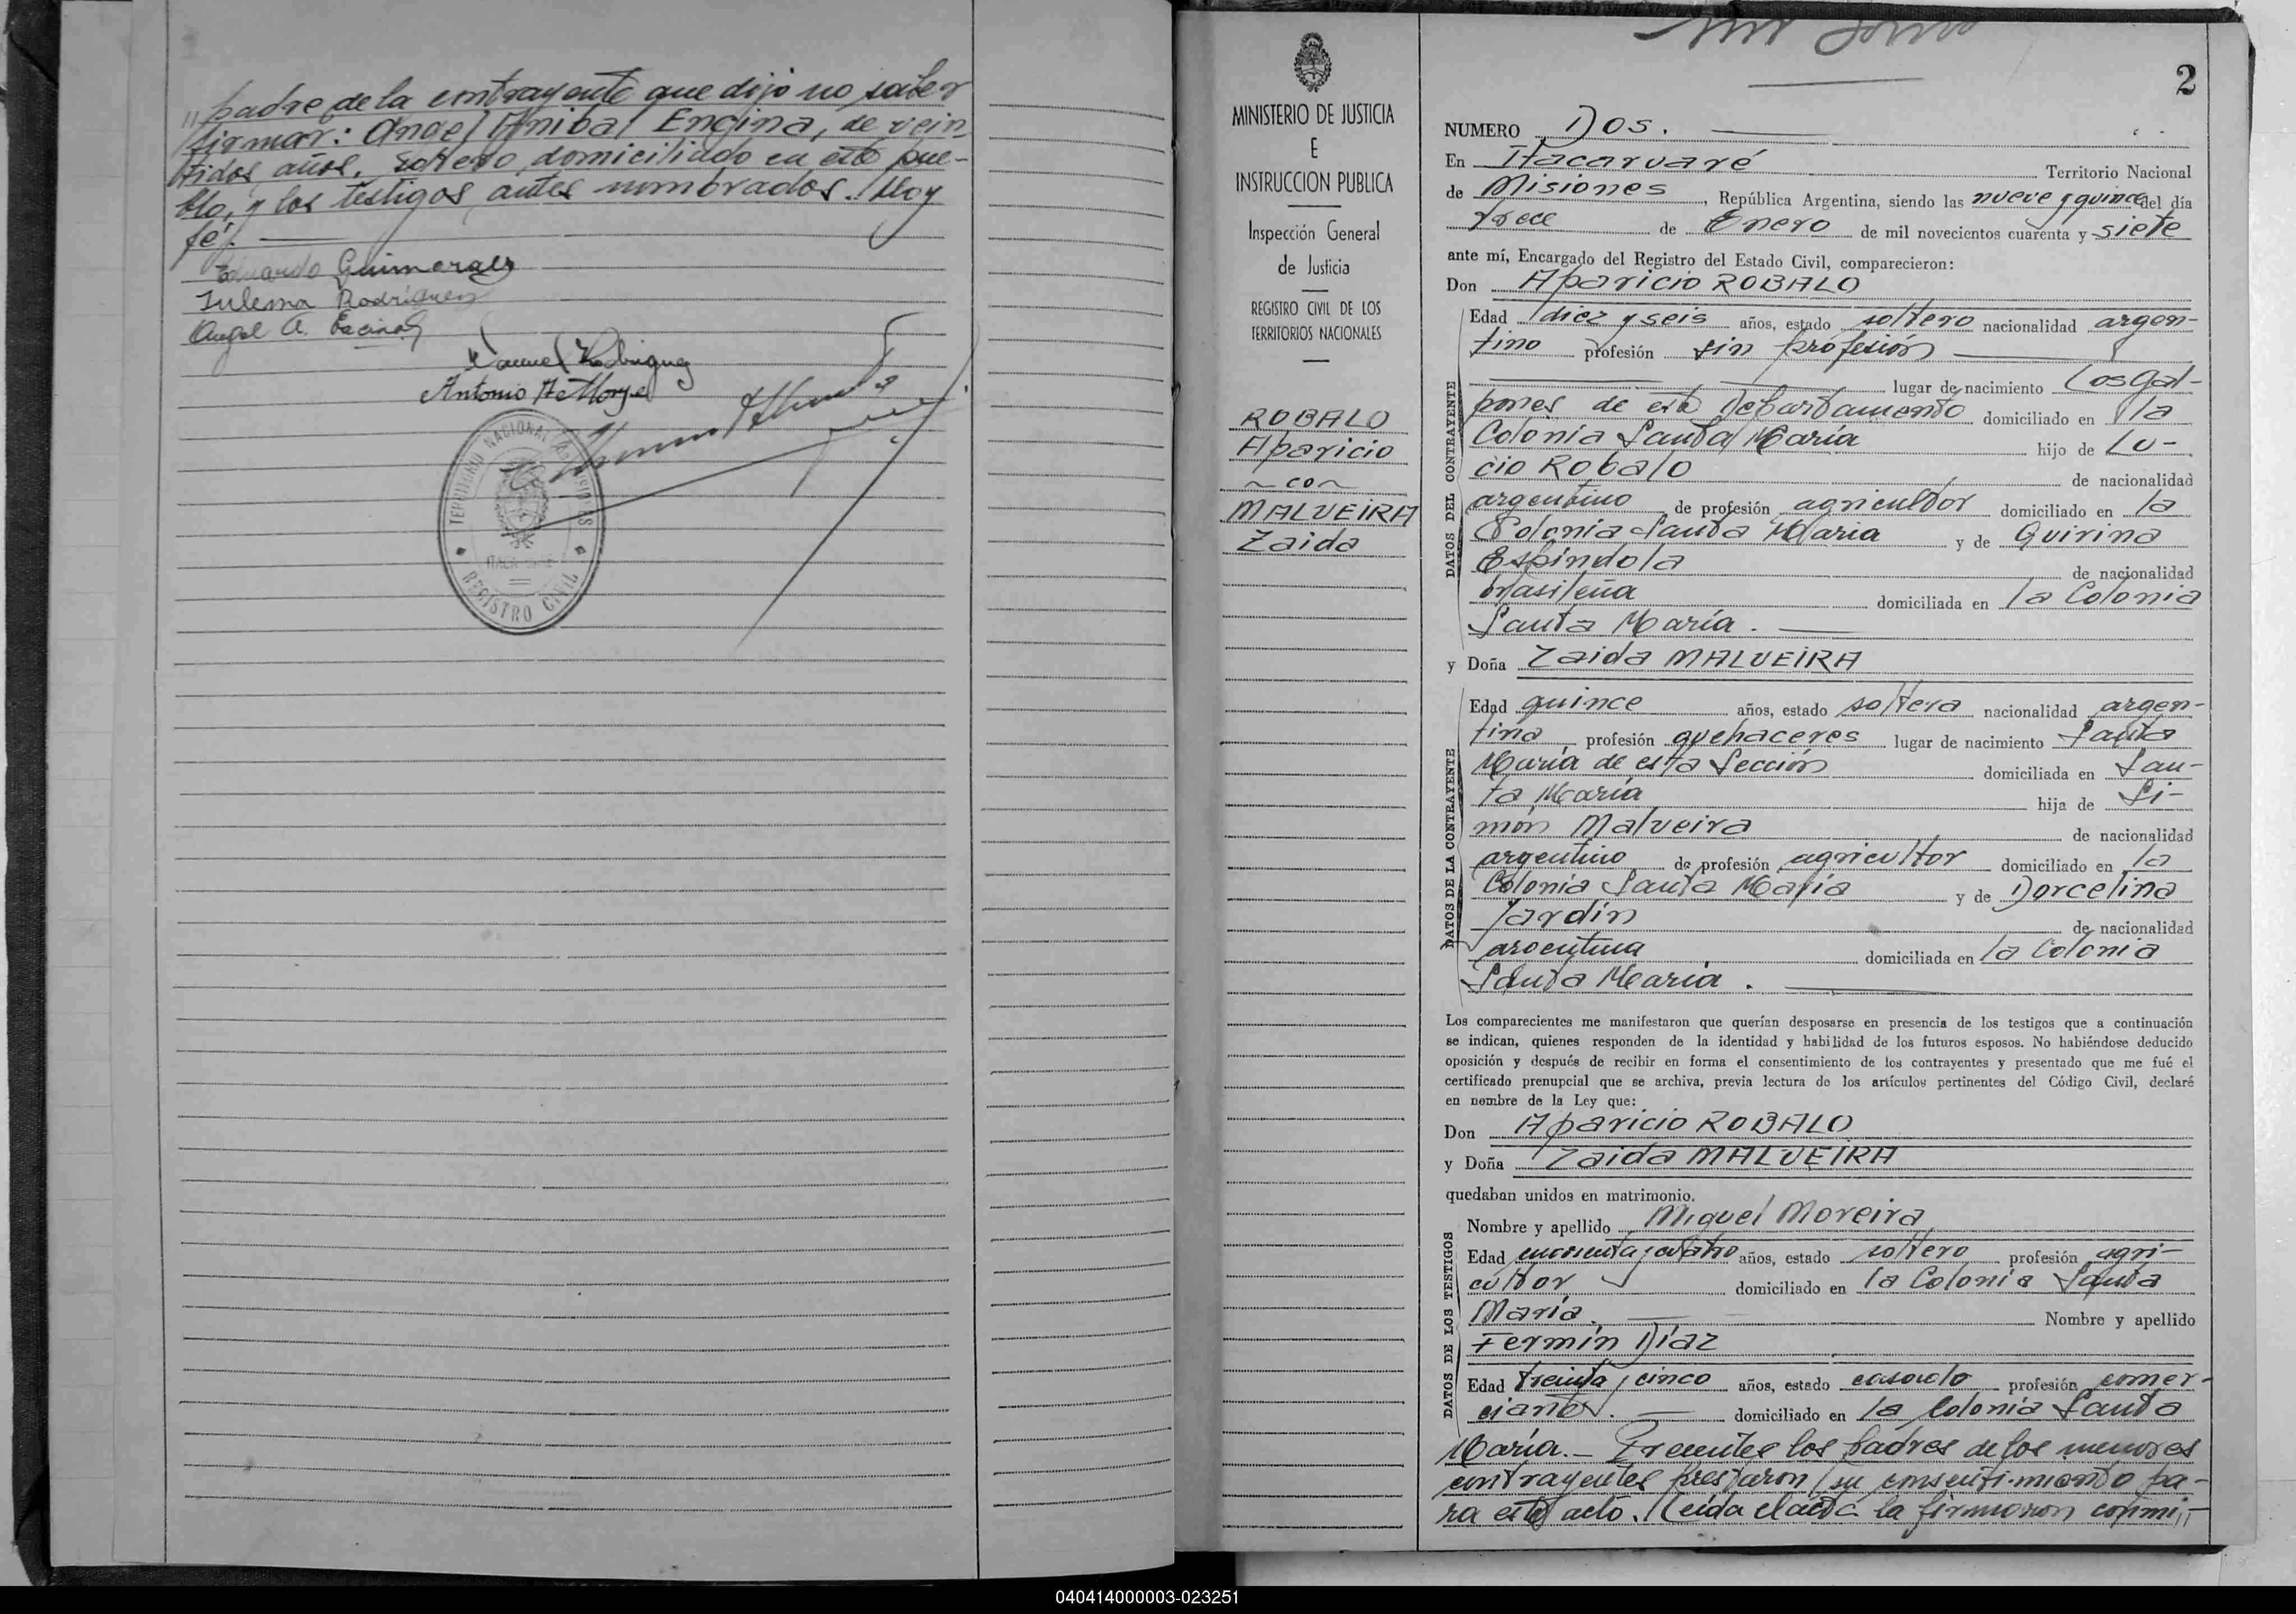 "padre de la contrayente que dijo no saber
firmar: Angel Anibal Encina, de vein-
tidos años, soltero, domiciliado en este pue-
blo, y los testigos antes nombrados. Doy
fé.
Eduardo Guimeraes
Zulema Rodríguez
Angel A. Encina
Manuel Rodriguez
Antonio
TERRITORIO NACIONAL DE MISIONES
REGISTRO CIVIL
MINISTERIO DE JUSTICIA
E
INSTRUCCION PUBLICA
Inspección General
de Justicia
REGISTRO CIVIL DE LOS
TERRITORIOS NACIONALES
ROBALO
Aparicio
~ con ~
MALVEIRA
Zaida
2
NUMERO Dos.
En Itacaruaré Territorio Nacional
de Misiones, República Argentina, siendo las nueve y quince del día
trece de Enero de mil novecientos cuarenta y siete
ante mí, Encargado del Registro del Estado Civil, comparecieron:
Don Aparicio ROBALO
DATOS DEL CONTRAYENTE
Edad diez y seis años, estado soltero nacionalidad argen-
tino profesión sin profesión
lugar de nacimiento Los Gal-
pones de este Departamento domiciliado en la
Colonia Santa María hijo de Lu-
cio Robalo de nacionalidad
argentino de profesión agricultor domiciliado en la
Colonia Santa Maria y de Quirina
Espíndola de nacionalidad
brasileña domiciliada en la Colonia
Santa María.
y Doña Zaida MALVEIRA
DATOS DE LA CONTRAYENTE
Edad quince años, estado soltera nacionalidad argen-
tina profesión quehaceres lugar de nacimiento Santa
María de esta Sección domiciliada en San-
ta María hija de Si-
món Malveira de nacionalidad
argentino de profesión agricultor domiciliado en la
Colonia Santa María y de Dorcelina
Jardín de nacionalidad
argentina domiciliada en la Colonia
Santa María.
Los comparecientes me manifestaron que querían desposarse en presencia de los testigos que a continuación
se indican, quienes responden de la identidad y habilidad de los futuros esposos. No habiéndose deducido
oposición y después de recibir en forma el consentimiento de los contrayentes y presentado que me fué el
certificado prenupcial que se archiva, previa lectura de los artículos pertinentes del Código Civil, declaré
en nombre de la Ley que:
Don Aparicio ROBALO
y Doña Zaida MALVEIRA
quedaban unidos en matrimonio.
DATOS DE LOS TESTIGOS
Nombre y apellido Miguel Moreira
Edad años, estado soltero profesión agri-
cultor domiciliado en la Colonia Santa
María. Nombre y apellido
Fermín Díaz
Edad treinta y cinco años, estado casado profesión comer-
ciante. domiciliado en la Colonia Santa
María.- Presentes los padres de los menores
contrayentes prestaron su consentimiento pa-
ra este acto. Leida el acta la firmaron conmi"
040414000003-023251